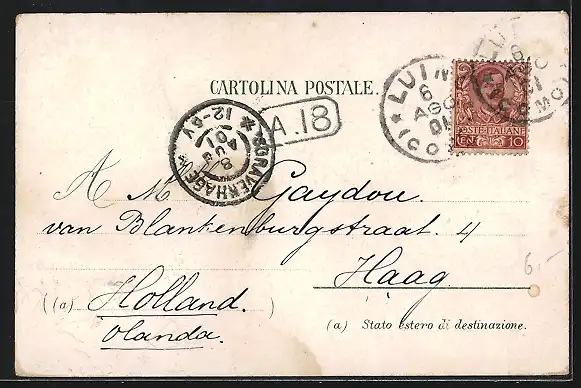 CARTOLINA POSTALE.
LUINO
6
AGO
01
(COMO)
POSTE ITALIANE
CEN. 10
A.18
'SGRAVENHAGE
12-4V
8
AUG
01
A M Gaydou.
van Blankenburgstraat. 4
Haag
6.-
((a) Holland. )
Olanda.
(a) Stato estero di destinazione.